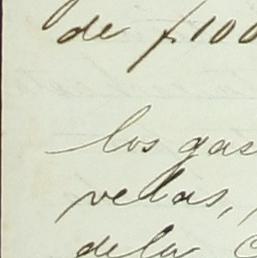 de f. 100
los gas
velas,
dela C